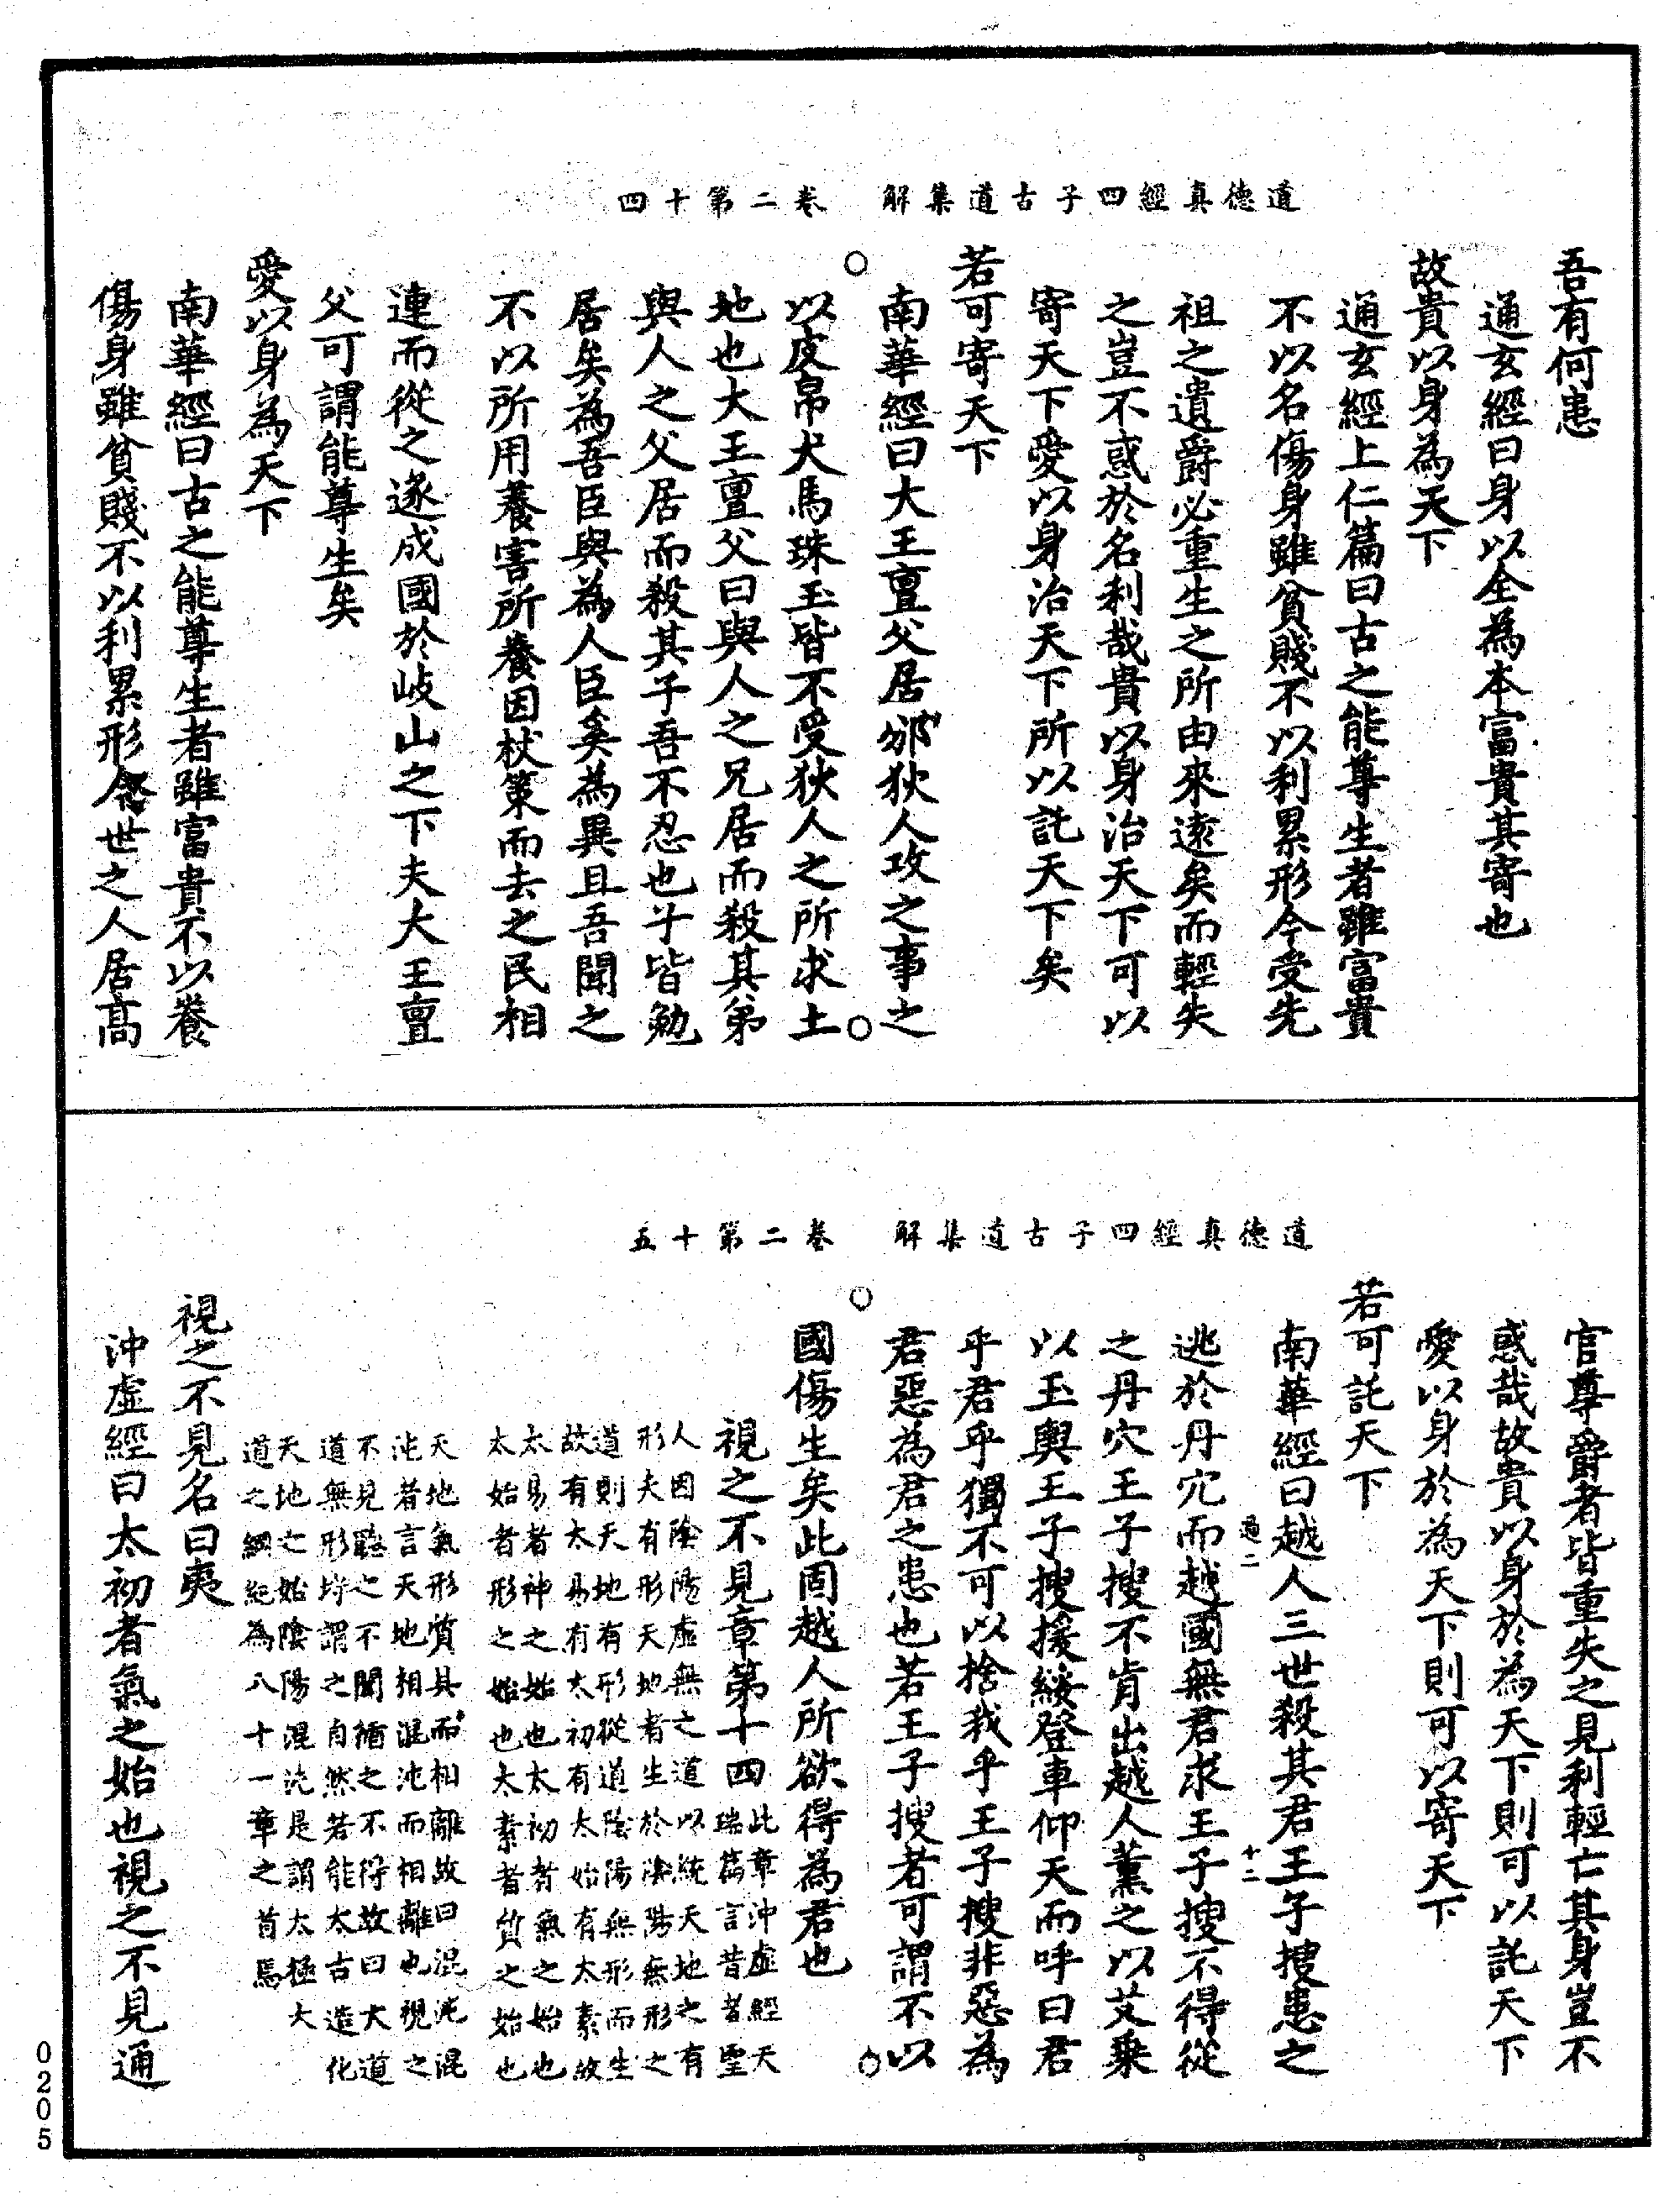 道德真經四子古道集解　卷二第十四
吾有何患
通玄經曰身以全為本富貴其寄也
故貴以身為天下
通玄經上仁篇曰古之能尊生者雖富貴
不以名傷身雖貧賤不以利累形今受先
祖之遺爵必重生之所由來遠矣而輕失
之豈不惑於名利哉貴以身治天下可以
寄天下愛以身治天下所以託天下矣
若可寄天下
南華經曰大王亶父居邠狄人攻之事之
以皮帛犬馬珠玉皆不受狄人之所求土
地也大王亶父曰與人之兄居而殺其弟
與人之父居而殺其子吾不忍也子皆勉
居矣為吾臣與為人臣奚為異且吾聞之
不以所用養害所養因杖策而去之民相
連而從之遂成國於岐山之下夫大王亶
父可謂能尊生矣
愛以身為天下
南華經曰古之能尊生者雖富貴不以養
傷身雖貧賤不以利累形今世之人居高
道德真經四子古道集解　卷二第十五
官尊爵者皆重失之見利輕亡其身豈不
惑哉故貴以身於為天下則可以託天下
愛以身於為天下則可以寄天下
若可託天下
南華經曰越人三世殺其君王子搜患之
過二　十二
逃於丹穴而越國無君求王子搜不得從
之丹穴王子搜不肯出越人薰之以艾乘
以玉輿王子搜援綏登車仰天而呼曰君
乎君乎獨不可以捨我乎王子搜非惡為
君惡為君之患也若王子搜者可謂不以
國傷生矣此固越人所欲得為君也
視之不見章第十四
此章沖虛經天
瑞篇言昔者聖
人因陰陽虛無之道以統天地之有
形夫有形天地者生於陰陽無形之
道則天地有形從道陰陽無形而生
故有太易有太初有太始有太素故
太易者神之始也太初者氣之始也
太始者形之始也太素者質之始也
天地氣形質具而相離故曰混沌混
沌者言天地相混沌而相離也視之
不見聽之不聞循之不得故曰大道
道無形埒謂之自然若能太古造化
天地之始陰陽混沌是謂太極大
道之綱紀為八十一章之首焉
視之不見名曰夷
沖虛經曰太初者氣之始也視之不見通
0205